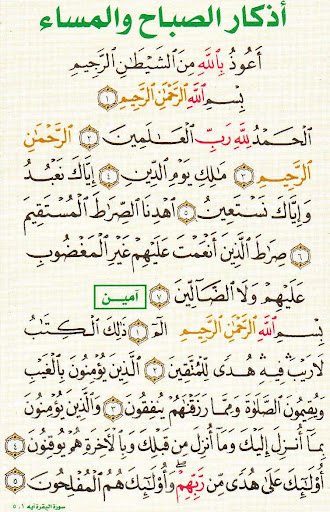 أذكار الصباح والمساء
أَعُوذُ بِاللَّهِ مِنَ الشَّيْطَٰنِ الرَّجِيمِ
بِسْمِ ٱللَّهِ ٱلرَّحْمَٰنِ ٱلرَّحِيمِ ١
ٱلْحَمْدُ لِلَّهِ رَبِّ ٱلْعَٰلَمِينَ ٢ ٱلرَّحْمَٰنِ
ٱلرَّحِيمِ ٣ مَٰلِكِ يَوْمِ ٱلدِّينِ ٤ إِيَّاكَ نَعْبُدُ
وَإِيَّاكَ نَسْتَعِينُ ٥ ٱهْدِنَا ٱلصِّرَٰطَ ٱلْمُسْتَقِيمَ
٦ صِرَٰطَ ٱلَّذِينَ أَنْعَمْتَ عَلَيْهِمْ غَيْرِ ٱلْمَغْضُوبِ
عَلَيْهِمْ وَلَا ٱلضَّآلِّينَ ٧ آمين
بِسْمِ ٱللَّهِ ٱلرَّحْمَٰنِ ٱلرَّحِيمِ الٓمٓ ١ ذَٰلِكَ ٱلْكِتَٰبُ
لَا رَيْبَ فِيهِ هُدًى لِّلْمُتَّقِينَ ٢ ٱلَّذِينَ يُؤْمِنُونَ بِٱلْغَيْبِ
وَيُقِيمُونَ ٱلصَّلَوٰةَ وَمِمَّا رَزَقْنَٰهُمْ يُنفِقُونَ ٣ وَٱلَّذِينَ يُؤْمِنُونَ
بِمَآ أُنزِلَ إِلَيْكَ وَمَآ أُنزِلَ مِن قَبْلِكَ وَبِٱلْءَاخِرَةِ هُمْ يُوقِنُونَ ٤
أُو۟لَٰٓئِكَ عَلَىٰ هُدًى مِّن رَّبِّهِمْ ۖ وَأُو۟لَٰٓئِكَ هُمُ ٱلْمُفْلِحُونَ ٥
سورة البقرة آيه ١ ـ ٥